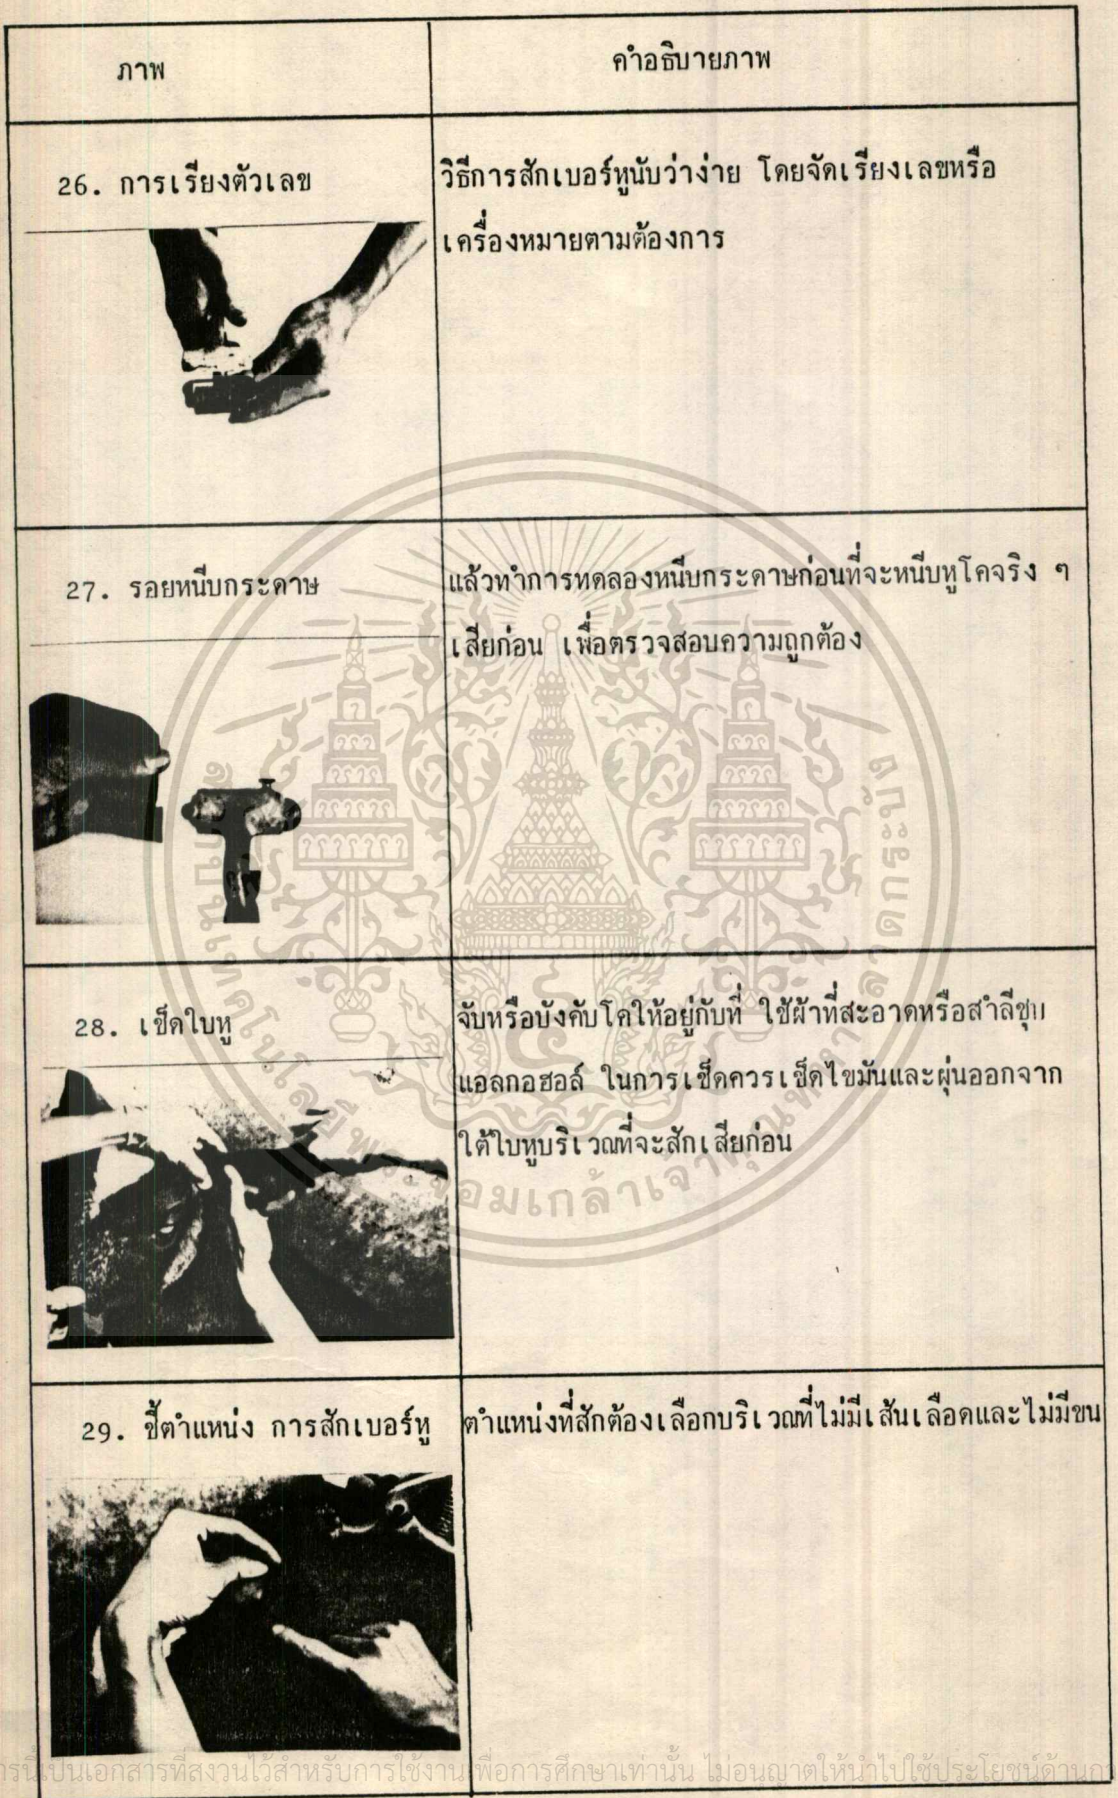 ภาพ
คำอธิบายภาพ
26. การเรียงตัวเลข
วิธีการสักเบอร์หูนับว่าง่าย โดยจัดเรียงเลขหรือ
เครื่องหมายตามต้องการ
27. รอยหนีบกระดาษ
แล้วทำการทดลองหนีบกระดาษก่อนที่จะหนีบหูโคจริง ๆ
เสียก่อน เพื่อตรวจสอบความถูกต้อง
28. เช็ดใบหู
จับหรือบังคับโคให้อยู่กับที่ ใช้ผ้าที่สะอาดหรือสำลีชุบ
แอลกอฮอล์ ในการเช็ดควรเช็ดไขมันและฝุ่นออกจาก
ใต้ใบหูบริเวณที่จะสักเสียก่อน
29. ชี้ตำแหน่ง การสักเบอร์หู
ตำแหน่งที่สักต้องเลือกบริเวณที่ไม่มีเส้นเลือดและไม่มีขน
สถาบันเทคโนโลยีพระจอมเกล้าเจ้าคุณทหารลาดกระบัง
เป็นเอกสารที่สงวนไว้สำหรับการใช้งานเพื่อการศึกษาเท่านั้น ไม่อนุญาตให้นำไปใช้ประโยชน์ด้าน